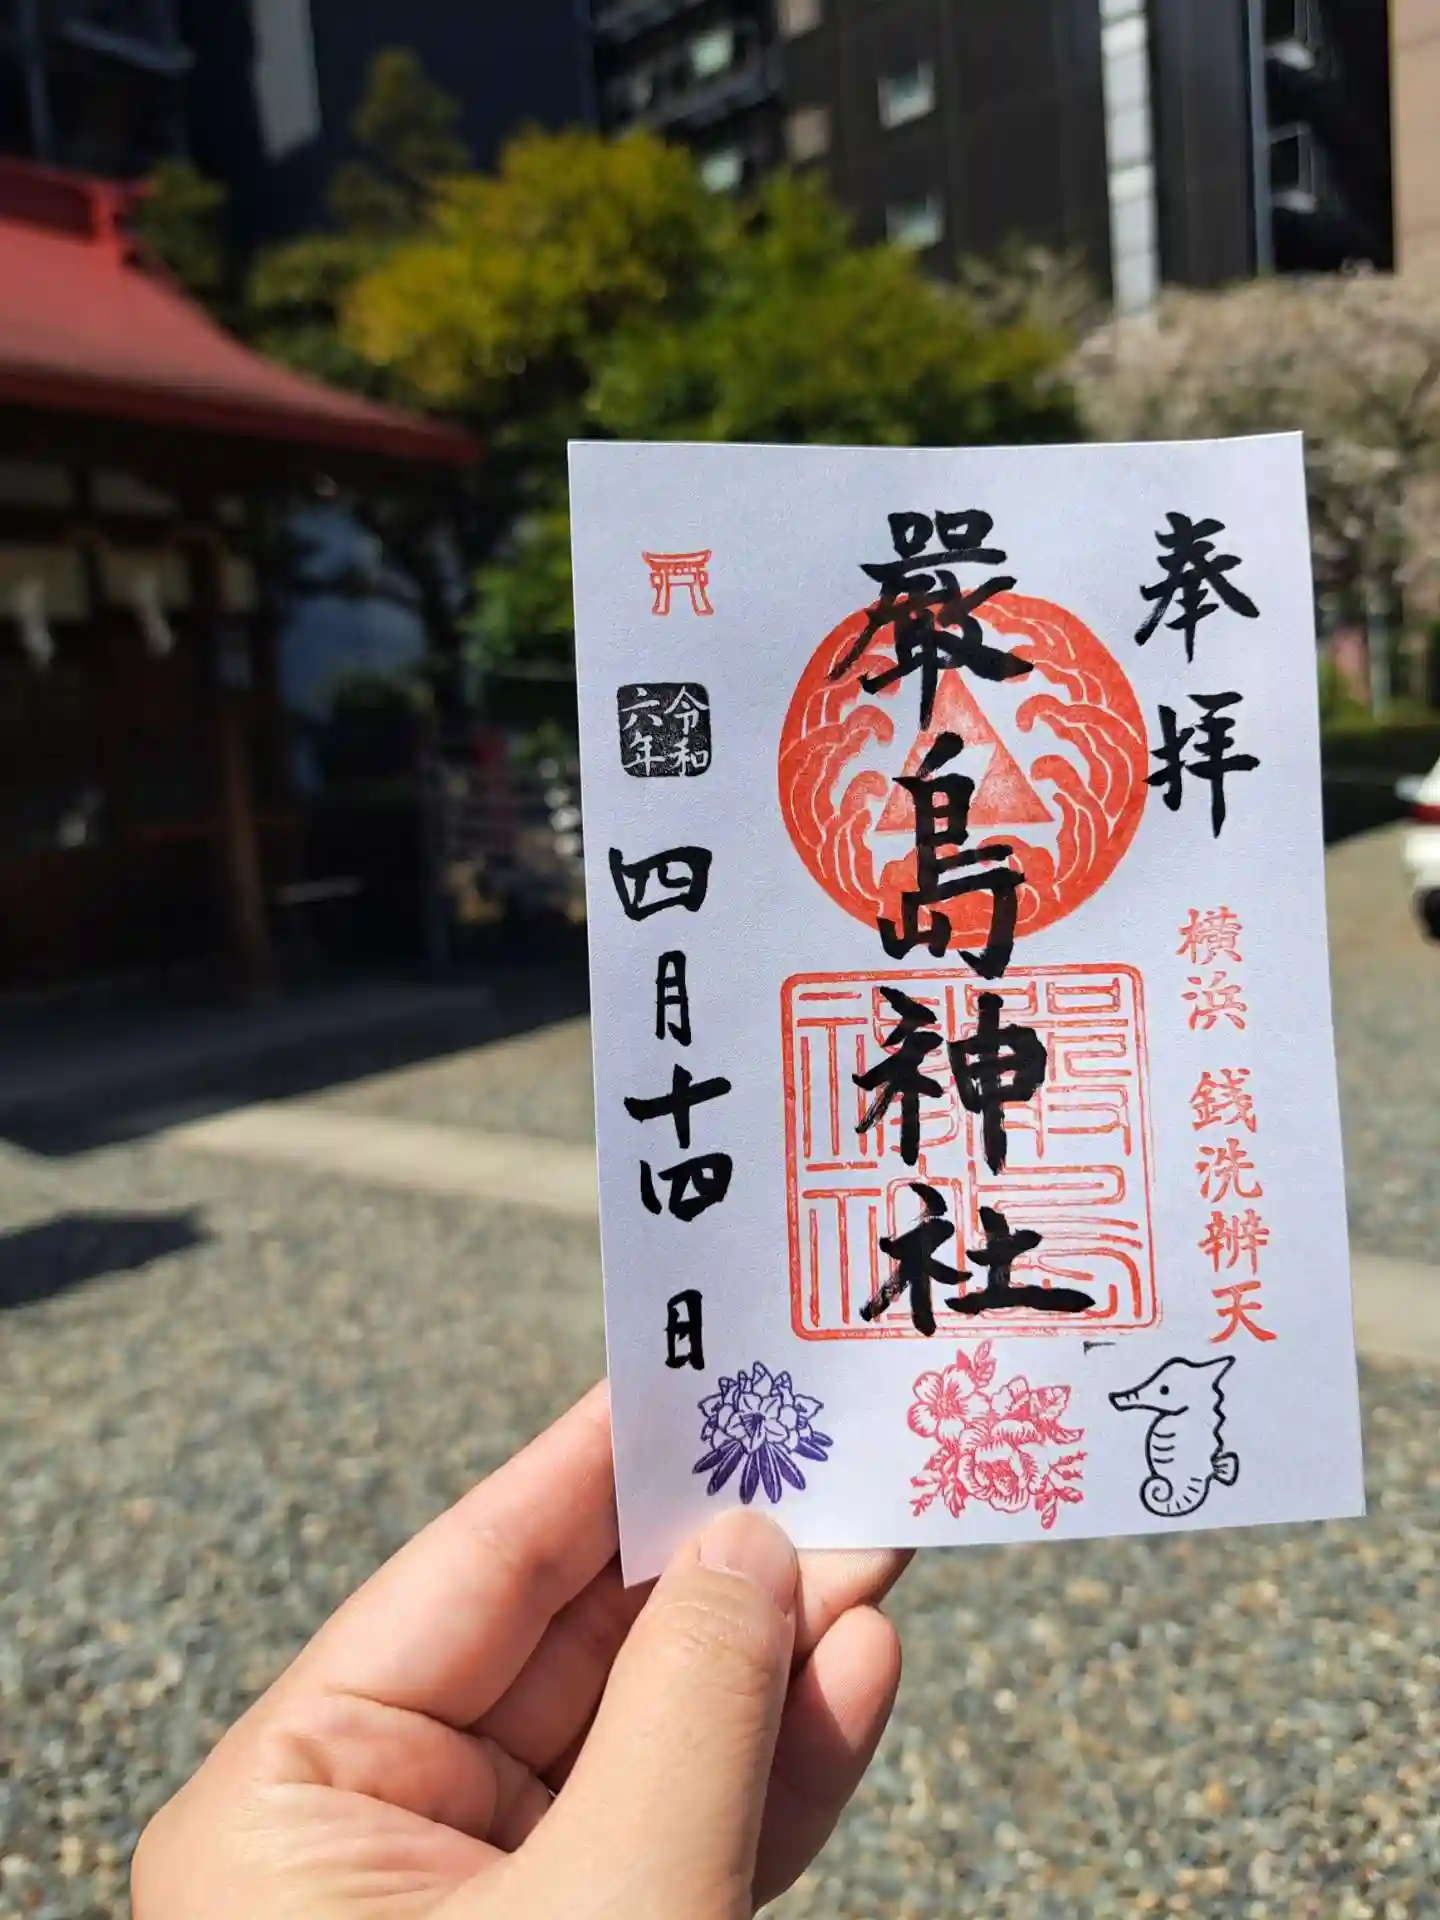 奉拝
横浜 銭洗辨天
嚴島神社
嚴島
神社
令和
六年
四月十四日